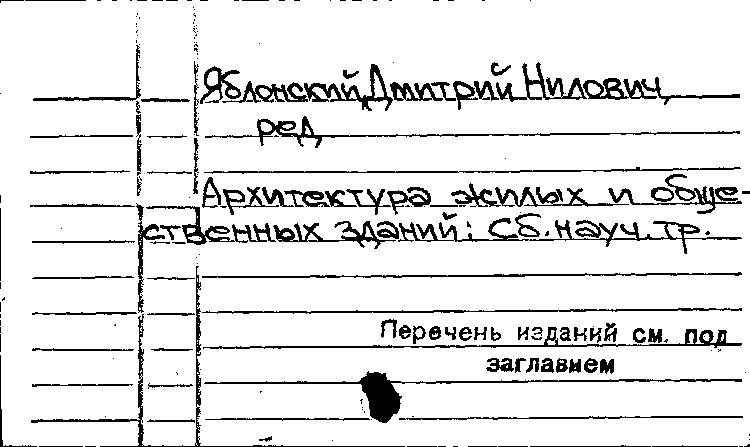 Яблонский, Дмитрий Нилович,
ред.
Архитектура жилых и обще-
ственных зданий: Сб. науч. тр.
Перечень изданий см. под
заглавием